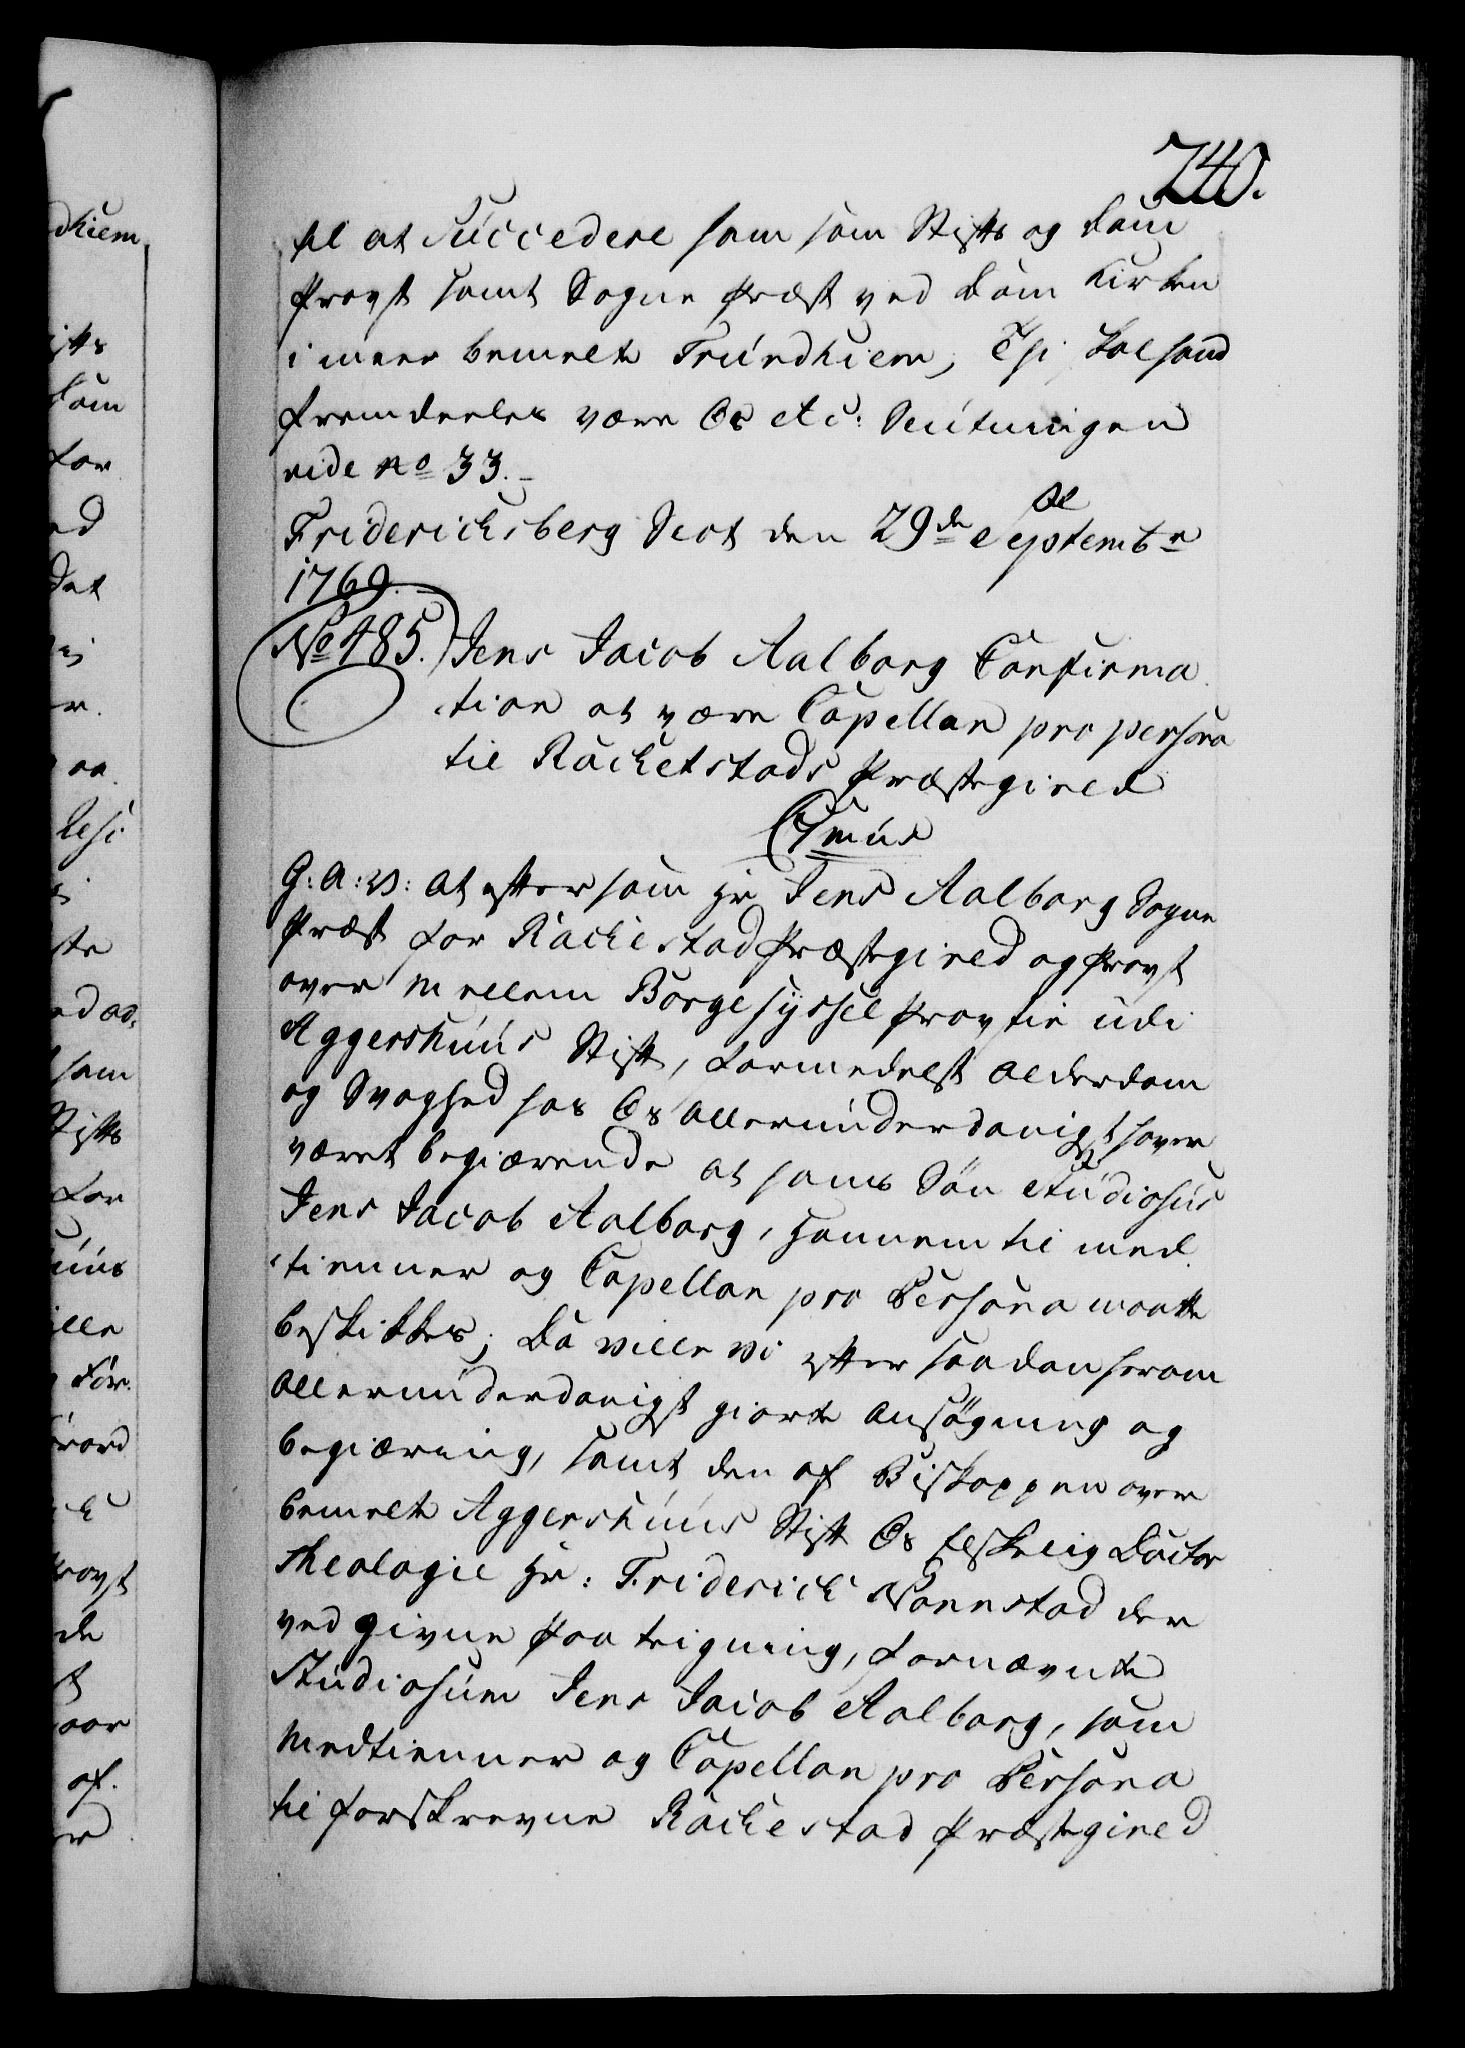 240.
til at Succedere ham som Stifts og Dom
Provst samt Sogne Præst ved Dom Kirken
i meer bemelte Trundhiem, Thi skal hand
fremdeeles være Os etc: Slutningen
vide No 33.
Friderichsberg Slot den 29de Septembr
1769.
No 485. Jens Jacob Aalborg Confirma
tion at være Capellan pro persona
til Rachetstads Præstegield
C 7mus
G: A: V: at eftersom Hr Jens Aalborg Sogne
Præst for Rachestad Præstegield og Provst
over Mellem Borgesyssel Provstie udi
Aggershuus Stift, formedelst Alderdom
og Svaghed hos Os allerunderdanigst haver
været begiærende at hans Søn Studiosus
Jens Jacob Aalborg, hannem til med
tienner og Capellan pro Persona maatte
beskikkes; Da ville vi efter saadan herom
allerunderdanigst giorte Ansøgning og
begiæring, samt den af Biskoppen over
bemelte Aggershuus Stift Os Elskelig Doctor
Theologie Hr: Friderich Nannestad der
ved givne Paategning, fornævnte
Studiosum Jens Jacob Aalborg, som
Medtienner og Capellan pro Persona
til forskrevne Rachestad Præstegield